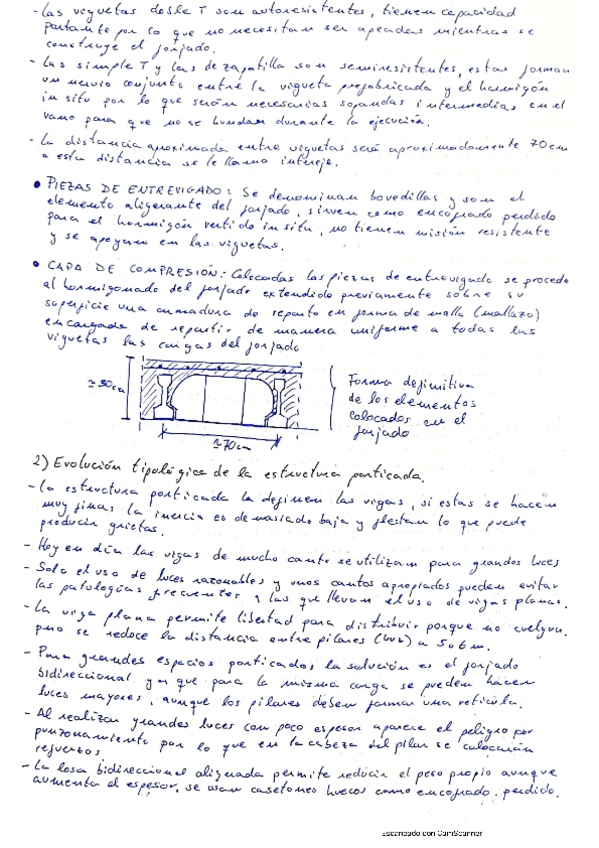 - Las viguetas doble T son autoresistentes, tienen capacidad
portante por lo que no necesitan ser apeadas mientras se
construye el forjado.
- Las simple T y las de zapatilla son semiresistentes, estas forman
un nervio conjunto entre la vigueta prefabricada y el hormigón
in situ por lo que serán necesarias sopandas intermedias en el
vano para que no se hundan durante la ejecución.
- La distancia aproximada entre viguetas será aproximadamente 70cm
a esta distancia se le llama intereje.
• PIEZAS DE ENTREVIGADO: Se denominan bovedillas y son el
elemento aligerante del forjado, sirven como encofrado perdido
para el hormigón vertido in situ, no tienen misión resistente
y se apoyan en las viguetas.
• CAPA DE COMPRESIÓN: Colocadas las piezas de entrevigado se procede
al hormigonado del forjado extendido previamente sobre su
superficie una armadura de reparto en forma de malla (mallazo)
encargada de repartir de manera uniforme a todas las
viguetas las cargas del forjado
≃30cm
≃70cm
Forma definitiva
de los elementos
colocados en el
forjado
2) Evolución tipológica de la estructura porticada.
- La estructura porticada la definen las vigas, si estas se hacen
muy finas la inercia es demasiado baja y flectan lo que puede
producir grietas.
- Hoy en día las vigas de mucho canto se utilizan para grandes luces
- Solo el uso de luces razonables y unos cantos apropiados pueden evitar
las patologías frecuentes a las que llevan el uso de vigas planas.
- La viga plana permite libertad para distribuir porque no cuelgan.
pero se reduce la distancia entre pilares (luz) a 5 o 6 m.
- Para grandes espacios porticados la solución es el forjado
bidireccional ya que para la misma carga se pueden hacer
luces mayores, aunque los pilares deben formar una retícula.
- Al realizar grandes luces con poco espesor aparece el peligro por
punzonamiento por lo que en la cabeza del pilar se colocarán
refuerzos
- La losa bidireccional aligerada permite reducir el peso propio aunque
aumenta el espesor, se usan casetones huecos como encofrado perdido.
Escaneado con CamScanner